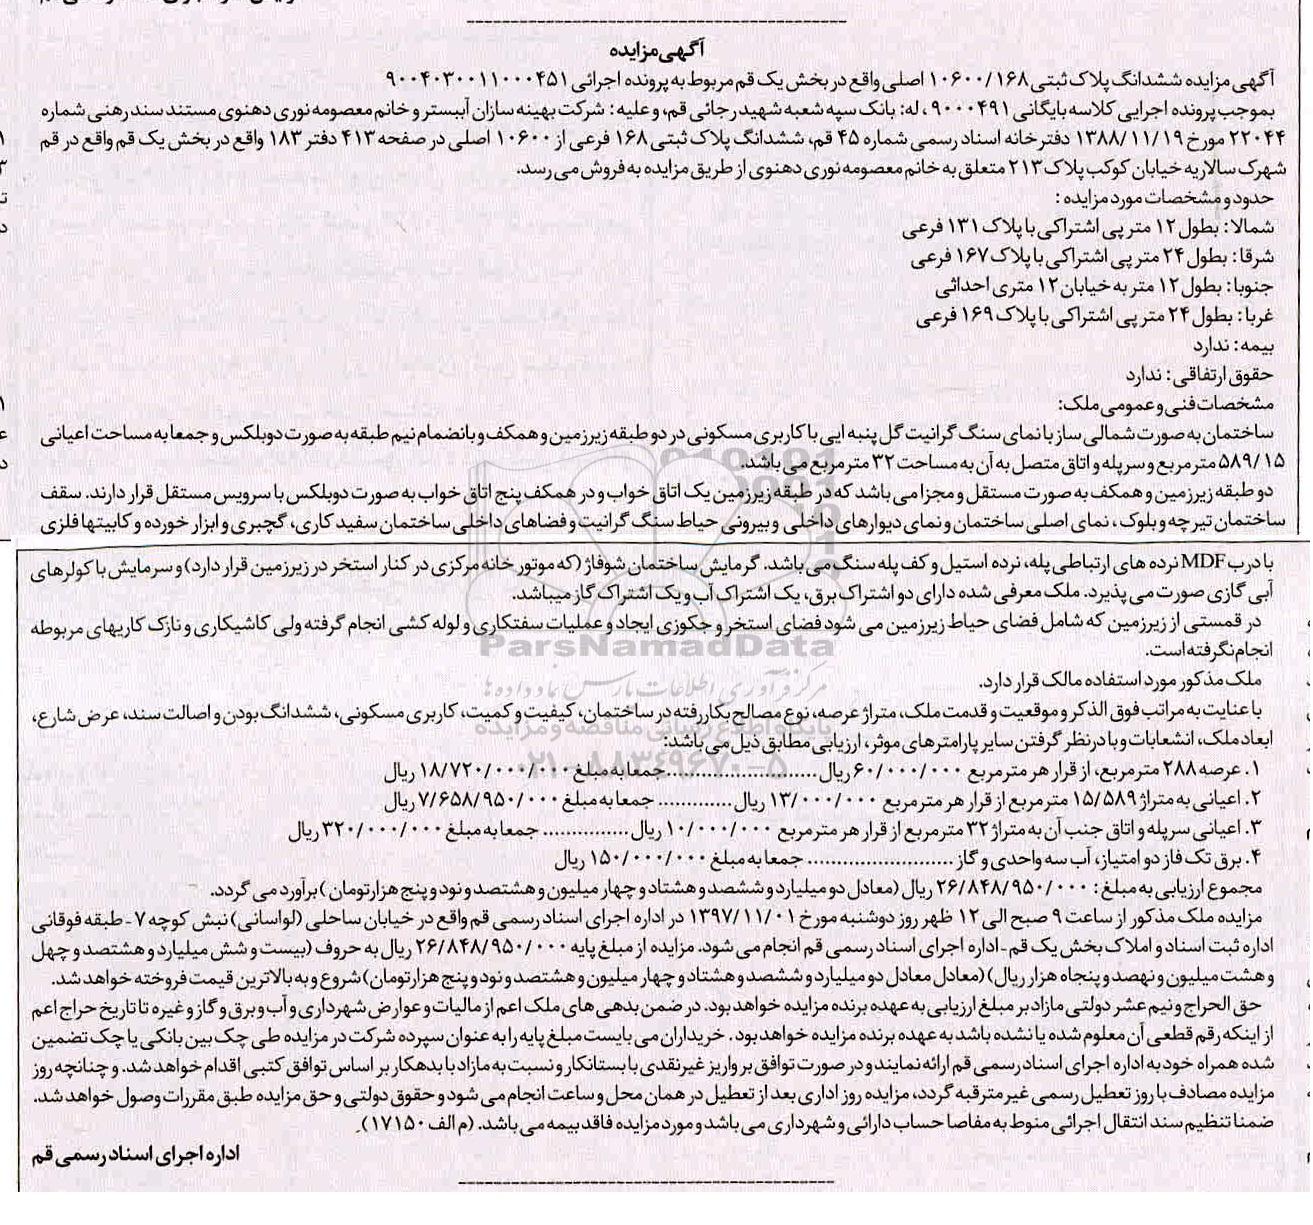 آگهی مزایده
آگهی مزایده ششدانگ پلاک ثبتی ۱۰۶۰۰/۱۶۸ اصلی واقع در بخش یک قم مربوط به پرونده اجرائی ۹۰۰۴۰۳۰۰۱۱۰۰۰۴۵۱
بموجب پرونده اجرایی کلاسه بایگانی ۹۰۰۰۴۹۱ ، له: بانک سپه شعبه شهید رجائی قم، و علیه: شرکت بهینه سازان آببستر و خانم معصومه نوری دهنوی مستند سند رهنی شماره
۲۲۰۴۴ مورخ ۱۳۸۸/۱۱/۱۹ دفترخانه اسناد رسمی شماره ۴۵ قم، ششدانگ پلاک ثبتی ۱۶۸ فرعی از ۱۰۶۰۰ اصلی در صفحه ۴۱۳ دفتر ۱۸۳ واقع در بخش یک قم واقع در قم
شهرک سالاریه خیابان کوکب پلاک ۲۱۳ متعلق به خانم معصومه نوری دهنوی از طریق مزایده به فروش می رسد.
حدود و مشخصات مورد مزایده :
شمالا: بطول ۱۲ متر پی اشتراکی با پلاک ۱۳۱ فرعی
شرقا: بطول ۲۴ متر پی اشتراکی با پلاک ۱۶۷ فرعی
جنوبا: بطول ۱۲ متر به خیابان ۱۲ متری احداثی
غربا: بطول ۲۴ متر پی اشتراکی با پلاک ۱۶۹ فرعی
بیمه: ندارد
حقوق ارتفاقی: ندارد
مشخصات فنی و عمومی ملک:
ساختمان به صورت شمالی ساز با نمای سنگ گرانیت گل پنبه ایی با کاربری مسکونی در دو طبقه زیرزمین و همکف و بانضمام نیم طبقه به صورت دوبلکس و جمعا به مساحت اعیانی
۵۸۹/۱۵ متر مربع و سرپله و اتاق متصل به آن به مساحت ۳۲ متر مربع می باشد.
دو طبقه زیرزمین و همکف به صورت مستقل و مجزا می باشد که در طبقه زیرزمین یک اتاق خواب و در همکف پنج اتاق خواب به صورت دوبلکس با سرویس مستقل قرار دارند. سقف
ساختمان تیرچه و بلوک ، نمای اصلی ساختمان و نمای دیوارهای داخلی و بیرونی حیاط سنگ گرانیت و فضاهای داخلی ساختمان سفید کاری، گچبری و ابزار خورده و کابیتها فلزی
با درب MDF نرده های ارتباطی پله، نرده استیل و کف پله سنگ می باشد. گرمایش ساختمان شوفاژ (که موتورخانه مرکزی در کنار استخر در زیرزمین قرار دارد) و سرمایش با کولرهای
آبی گازی صورت می پذیرد. ملک معرفی شده دارای دو اشتراک برق، یک اشتراک آب و یک اشتراک گاز میباشد.
در قمستی از زیرزمین که شامل فضای حیاط زیرزمین می شود فضای استخر و جکوزی ایجاد و عملیات سفتکاری و لوله کشی انجام گرفته ولی کاشیکاری و نازک کاریهای مربوطه
انجام نگرفته است.
ملک مذکور مورد استفاده مالک قرار دارد.
با عنایت به مراتب فوق الذکر و موقعیت و قدمت ملک، متراژ عرصه، نوع مصالح بکاررفته در ساختمان، کیفیت و کمیت، کاربری مسکونی، ششدانگ بودن و اصالت سند، عرض شارع،
ابعاد ملک، انشعابات و با درنظر گرفتن سایر پارامترهای موثر، ارزیابی مطابق ذیل می باشد:
۱. عرصه ۲۸۸ متر مربع، از قرار هر متر مربع ۶۰/۰۰۰/۰۰۰ ریال......................... جمعا به مبلغ ۱۸/۷۲۰/۰۰۰/۰۰۰ ریال
۲. اعیانی به متراژ ۱۵/۵۸۹ متر مربع از قرار هر متر مربع ۱۳/۰۰۰/۰۰۰ ریال............. جمعا به مبلغ ۷/۶۵۸/۹۵۰/۰۰۰ ریال
۳. اعیانی سرپله و اتاق جنب آن به متراژ ۳۲ متر مربع از قرار هر متر مربع ۱۰/۰۰۰/۰۰۰ ریال............... جمعا به مبلغ ۳۲۰/۰۰۰/۰۰۰ ریال
۴. برق تک فاز دو امتیاز، آب سه واحدی و گاز ......................... جمعا به مبلغ ۱۵۰/۰۰۰/۰۰۰ ریال
مجموع ارزیابی به مبلغ: ۲۶/۸۴۸/۹۵۰/۰۰۰ ریال (معادل دو میلیارد و ششصد و هشتاد و چهار میلیون و هشتصد و نود و پنج هزارتومان )برآورد می گردد.
مزایده ملک مذکور از ساعت ۹ صبح الی ۱۲ ظهر روز دوشنبه مورخ ۱۳۹۷/۱۱/۰۱ در اداره اجرای اسناد رسمی قم واقع در خیابان ساحلی (لواسانی) نبش کوچه ۷ - طبقه فوقانی
اداره ثبت اسناد و املاک بخش یک قم - اداره اجرای اسناد رسمی قم انجام می شود. مزایده از مبلغ پایه ۲۶/۸۴۸/۹۵۰/۰۰۰ ریال به حروف (بیست و شش میلیارد و هشتصد و چهل
و هشت میلیون و نهصد و پنجاه هزار ریال) (معادل معادل دو میلیارد و ششصد و هشتاد و چهار میلیون و هشتصد و نود و پنج هزارتومان) شروع و به بالاترین قیمت فروخته خواهد شد.
حق الحراج و نیم عشر دولتی مازاد بر مبلغ ارزیابی به عهده برنده مزایده خواهد بود. در ضمن بدهی های ملک اعم از مالیات و عوارض شهرداری و آب و برق و گاز و غیره تا تاریخ حراج اعم
از اینکه رقم قطعی آن معلوم شده یا نشده باشد به عهده برنده مزایده خواهد بود . خریداران می بایست مبلغ پایه را به عنوان سپرده شرکت در مزایده طی چک بین بانکی یا چک تضمین
شده همراه خود به اداره اجرای اسناد رسمی قم ارائه نمایند و در صورت توافق بر واریز غیرنقدی با بستانکار و نسبت به مازاد با بدهکار بر اساس توافق کتبی اقدام خواهد شد. و چنانچه روز
مزایده مصادف با روز تعطیل رسمی غیر مترقبه گردد، مزایده روز اداری بعد از تعطیل در همان محل و ساعت انجام می شود و حقوق دولتی و حق مزایده طبق مقررات وصول خواهد شد.
ضمنا تنظیم سند انتقال اجرائی منوط به مفاصا حساب دارائی و شهرداری می باشد و مورد مزایده فاقد بیمه می باشد. (م الف ۱۷۱۵۰).
اداره اجرای اسناد رسمی قم
ParsNamadData
مرکز فرآوری اطلاعات پارس نماد داده ها
پایگاه اطلاع رسانی مناقصه و مزایده
۰۲۱-۸۸۳۴۹۶۷۰-۵